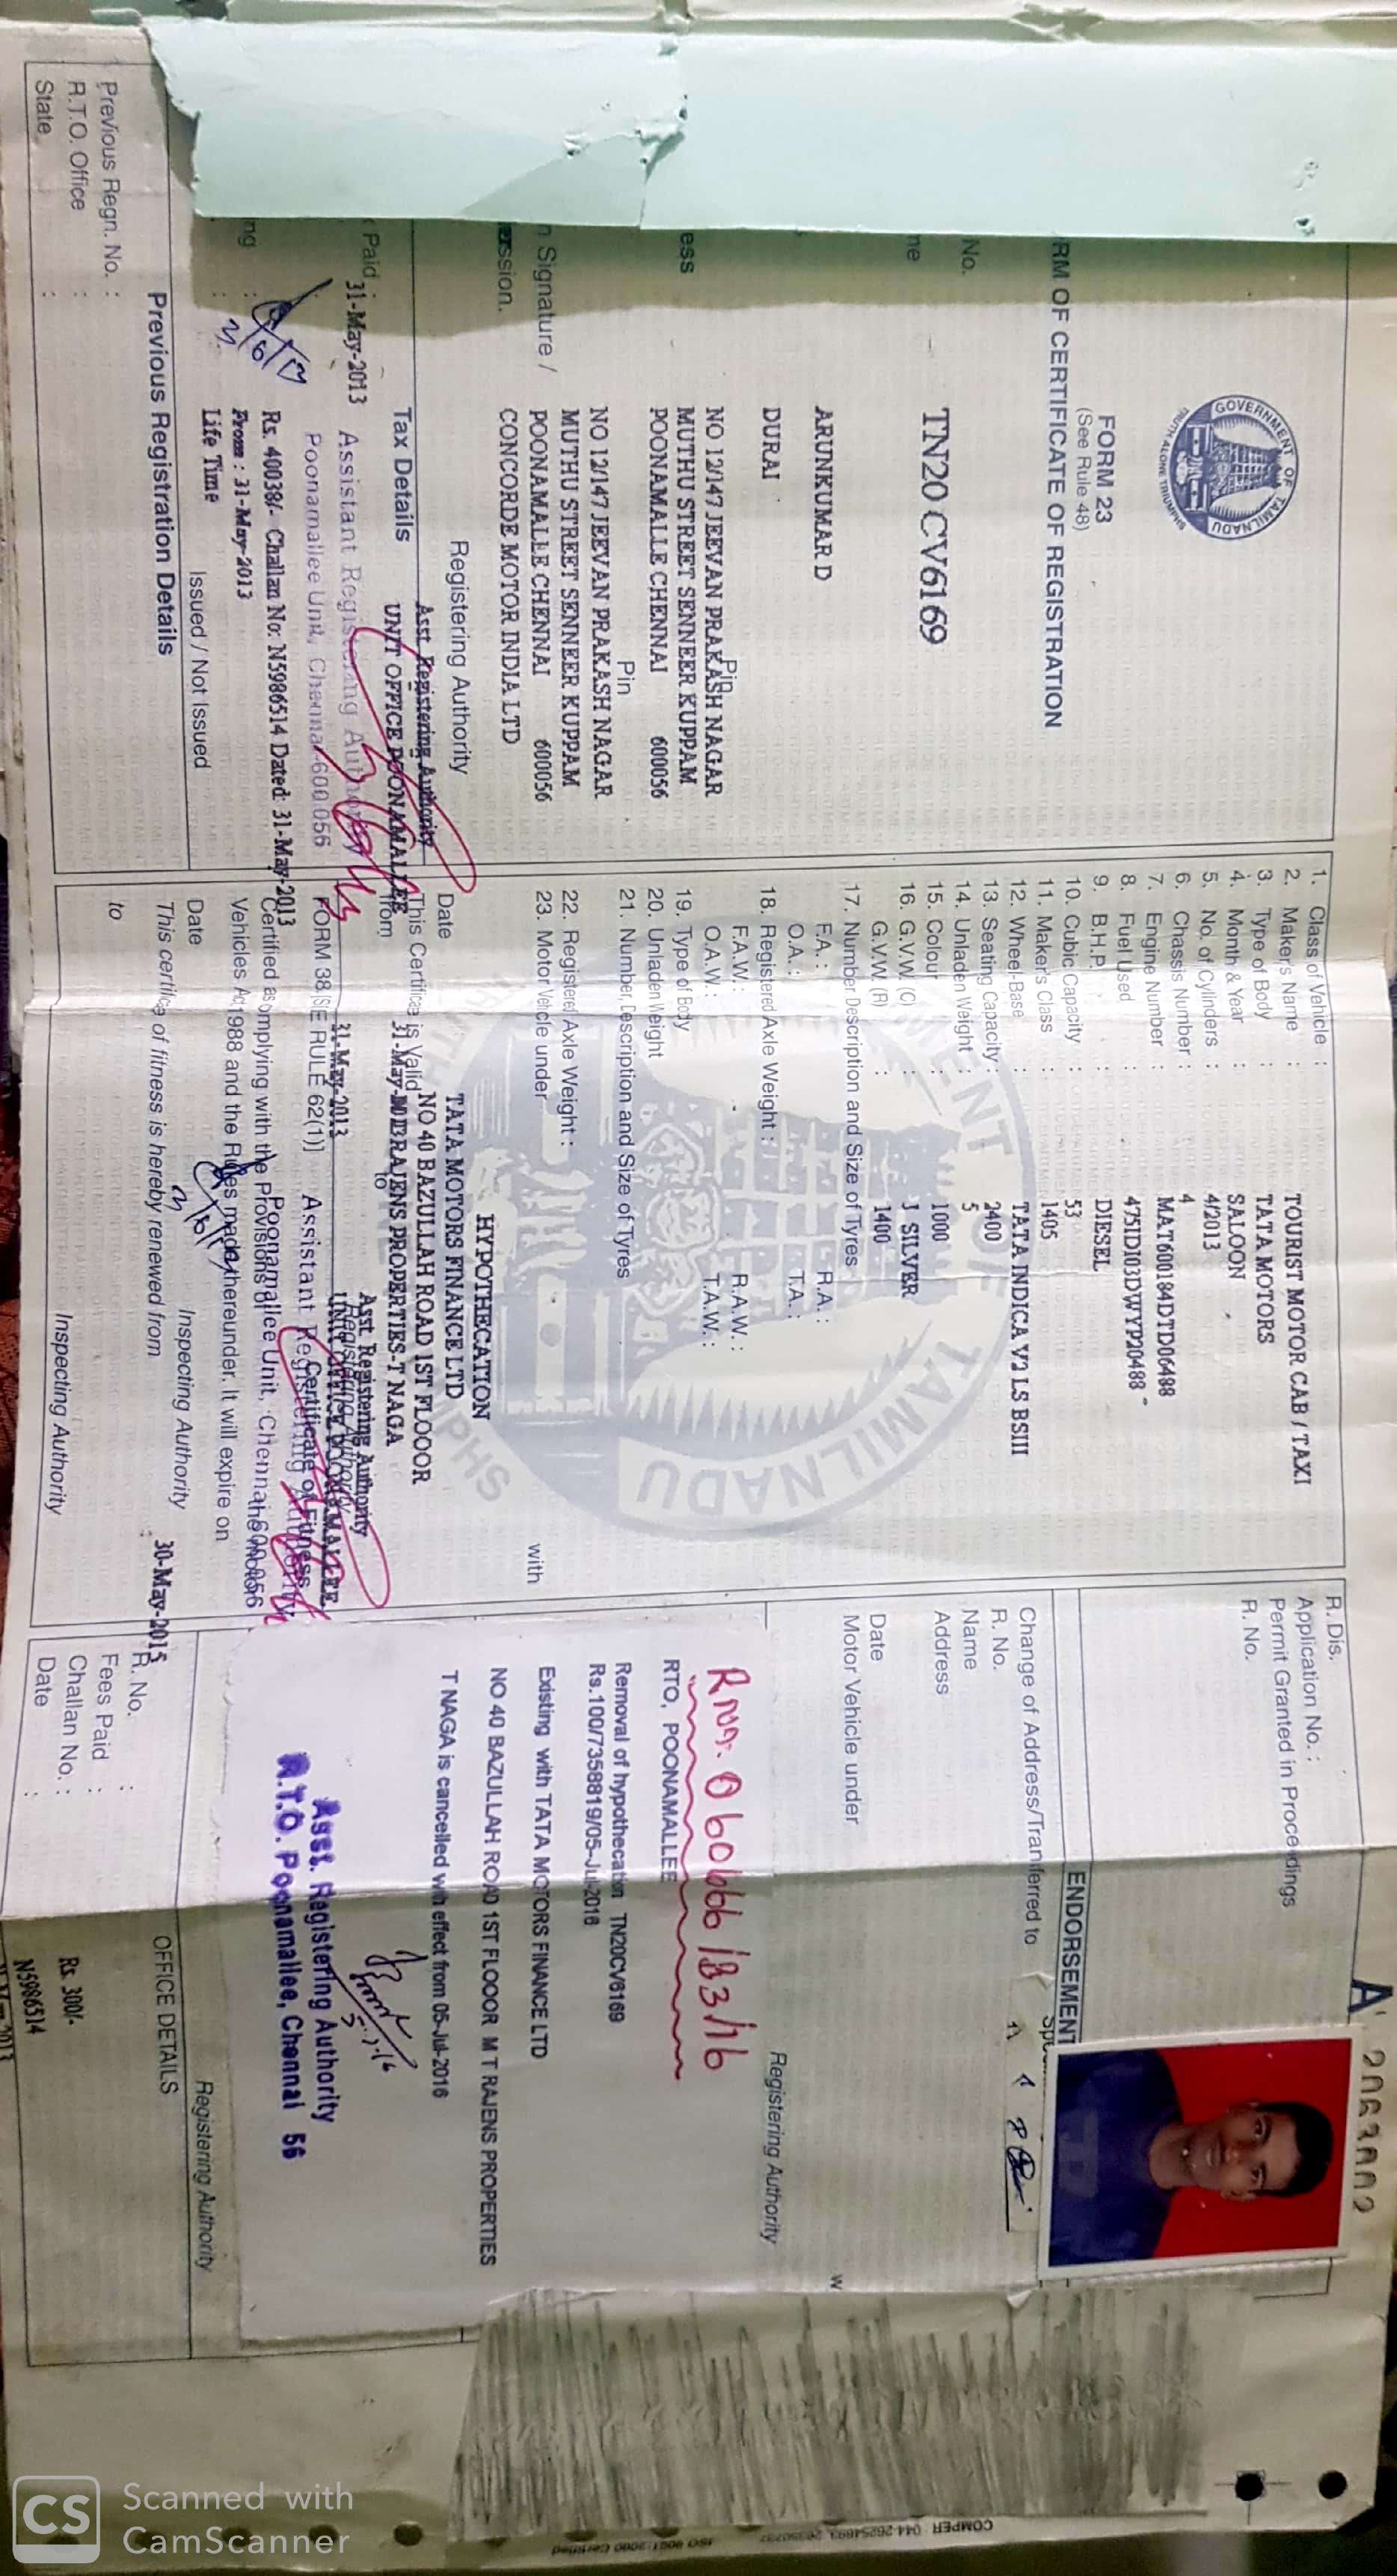 GOVERNMENT OF TAMILNADU
TRUTH ALONE TRIUMPHS
FORM 23
(See Rule 48)
RM OF CERTIFICATE OF REGISTRATION
No. TN20 CV6169
me ARUNKUMAR D
DURAI
ess NO 12/147 JEEVAN PRAKASH NAGAR
MUTHU STREET SENNEER KUPPAM
Pin
POONAMALLE CHENNAI 600056
NO 12/147 JEEVAN PRAKASH NAGAR
MUTHU STREET SENNEER KUPPAM
Pin
n Signature / POONAMALLE CHENNAI 600056
ession. CONCORDE MOTOR INDIA LTD
Registering Authority
Asst. Registering Authority
Tax Details UNIT OFFICE POONAMALLEE
Paid : 31-May-2013 Assistant Registering Authority
Poonamallee Unit, Chennai-600 056
Rs. 40038/- Challan No: N5986514 Dated: 31-May-2013
ng : From : 31-May-2013
: Life Time
Issued / Not Issued
Previous Registration Details
Previous Regn. No. :
R.T.O. Office :
State :
1. Class of Vehicle : TOURIST MOTOR CAB / TAXI
2. Makers Name : TATA MOTORS
3. Type of Body : SALOON
4. Month & Year : 4/2013
5. No. of Cylinders : 4
6. Chassis Number : MAT600184DTD06488
7. Engine Number : 475IDI03DWYP20488
8. Fuel Used : DIESEL
9. B.H.P. : 53
10. Cubic Capacity : 1405
11. Maker's Class : TATA INDICA V2 LS BSIII
12. Wheel Base : 2400
13. Seating Capacity : 5
14. Unladen Weight : 1000
15. Colour : J SILVER
16. G.V.W. (C) : 1400
G.V.W (R) :
17. Number Description and Size of Tyres
F.A. : R.A. :
O.A. : T.A. :
18. Registered Axle Weight :
F.A.W. : R.A.W. :
O.A.W. : T.A.W. :
19. Type of Body
20. Unladen Weight
21. Number, Description and Size of Tyres
22. Registered Axle Weight :
23. Motor Vehicle under with
HYPOTHECATION
TATA MOTORS FINANCE LTD
NO 40 BAZULLAH ROAD 1ST FLOOOR
RAJENS PROPERTIES-T NAGA
Date
This Certificate is Valid
from 31-May- to
Asst. Registering Authority
Registering Authority
31-May-2013
FORM 38 [SEE RULE 62(1)] Assistant Registering Authority
Certificate of Fitness
Poonamallee Unit, Chennai-600 056
Certified as complying with the Provisions of
Vehicles Act 1988 and the Rules made thereunder. It will expire on
30-May-2015
Date Inspecting Authority
This certificate of fitness is hereby renewed from
to
Inspecting Authority
A
R. Dis.
Application No. :
Permit Granted in Proceedings
R. No.
ENDORSEMENT
Change of Address/Tranferred to
R. No.
Name
Address
Date
Motor Vehicle under
Registering Authority
RTO, POONAMALLEE
Removal of hypothecation TN20CV6169
Rs.100/7358819/05-Jul-2016
Existing with TATA MOTORS FINANCE LTD
NO 40 BAZULLAH ROAD 1ST FLOOOR M T RAJENS PROPERTIES
T NAGA is cancelled with effect from 05-Jul-2016
Asst. Registering Authority
R.T.O. Poonamallee, Chennai 56
Registering Authority
OFFICE DETAILS
R. No. :
Fees Paid : Rs. 300/-
Challan No. : N5986514
Date :
CS Scanned with
CamScanner